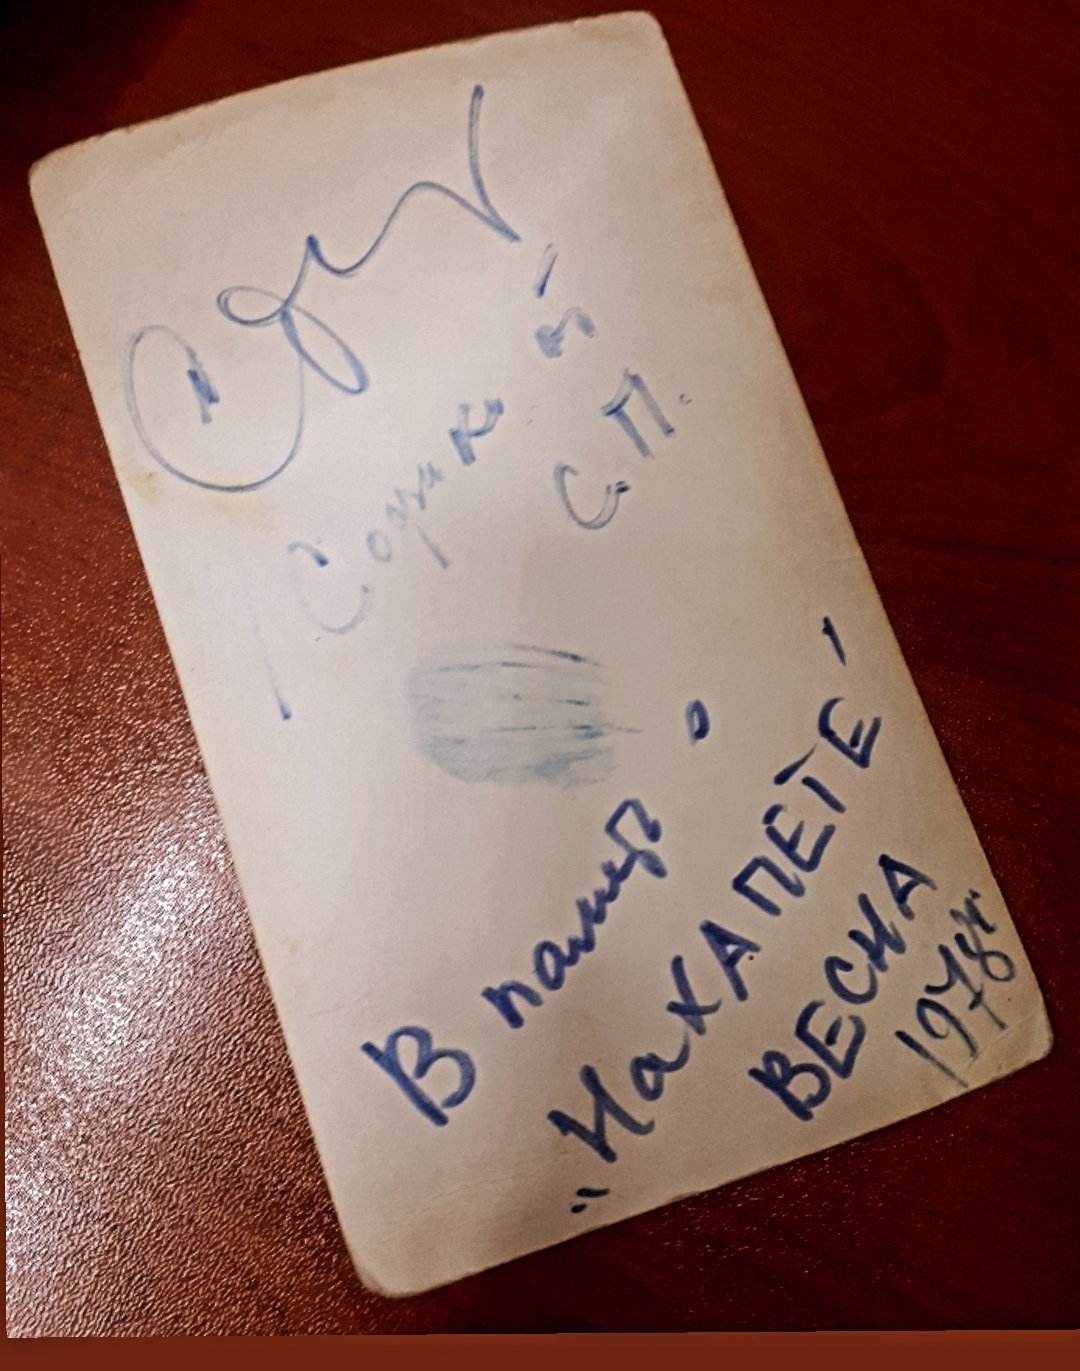 С.П.
В память о
"НаХАПЕТЕ"
ВЕСНА
1978г